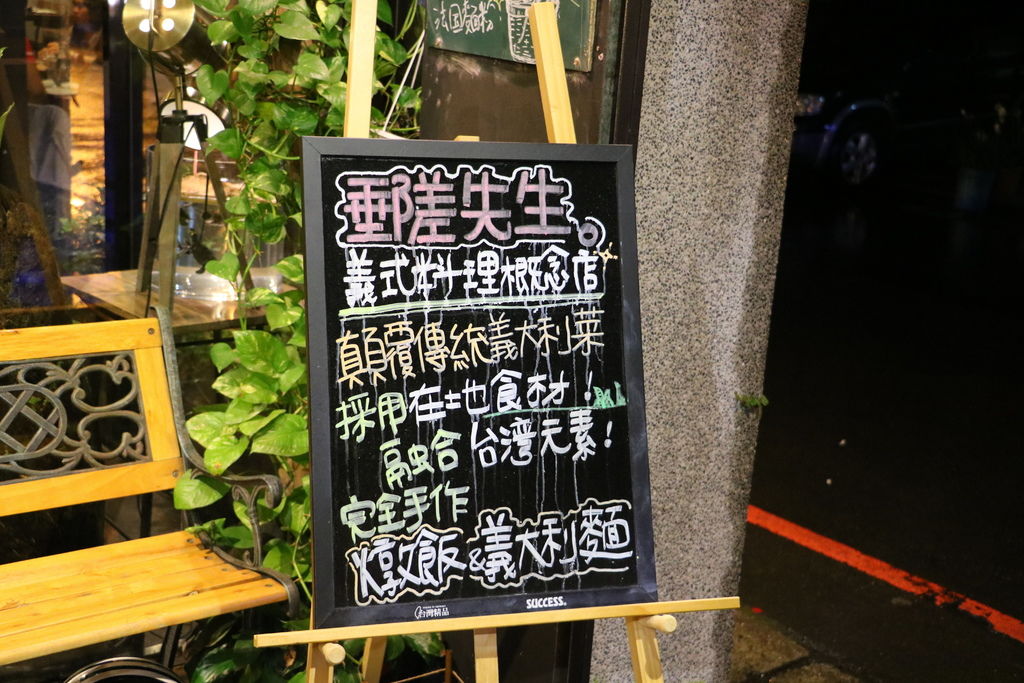 法国麵粉
郵差先生。
義式料理概念店
顛覆傳統義大利菜
採用在地食材！
融合台灣元素！
完全手作
燉飯&義大利麵
台灣精品
SUCCESS.